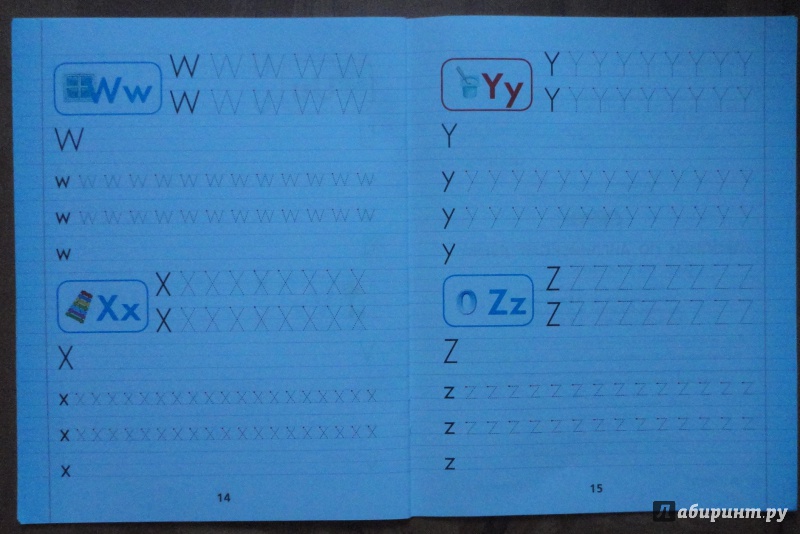 Ww
W W W W W
W W W W W
W
w w w w w w w w w w w w w
w w w w w w w w w w w w w
w
Xx
X X X X X X X X X
X X X X X X X X X
X
x x x x x x x x x x x x x x x x x x x
x x x x x x x x x x x x x x x x x x x
x
14
Yy
Y Y Y Y Y Y Y Y Y
Y Y Y Y Y Y Y Y Y
Y
y y y y y y y y y y y y y y
y y y y y y y y y y y y y y
y
Zz
Z Z Z Z Z Z Z Z Z
Z Z Z Z Z Z Z Z Z
Z
z z z z z z z z z z z z z z z
z z z z z z z z z z z z z z z
z
15
Лабиринт.ру